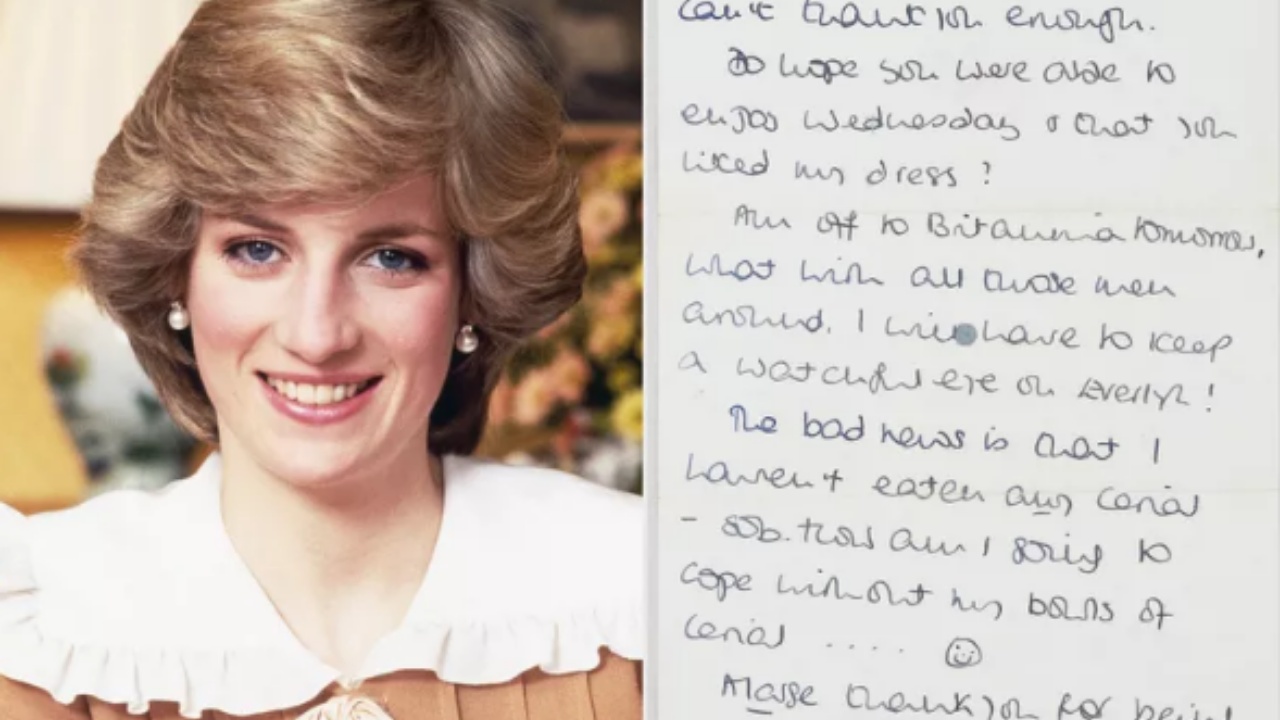 can't thank you enough.
Do hope you were able to
enjoy Wednesday & that you
liked my dress?
Am off to Britannia tomorrow,
what with all those men
around. I will have to keep
a watchful eye on Everlyn!
The bad news is that I
haven't eaten any cerial
- sob. How am I going to
cope without my bowls of
cerial .... ☺
Masse thank you for being